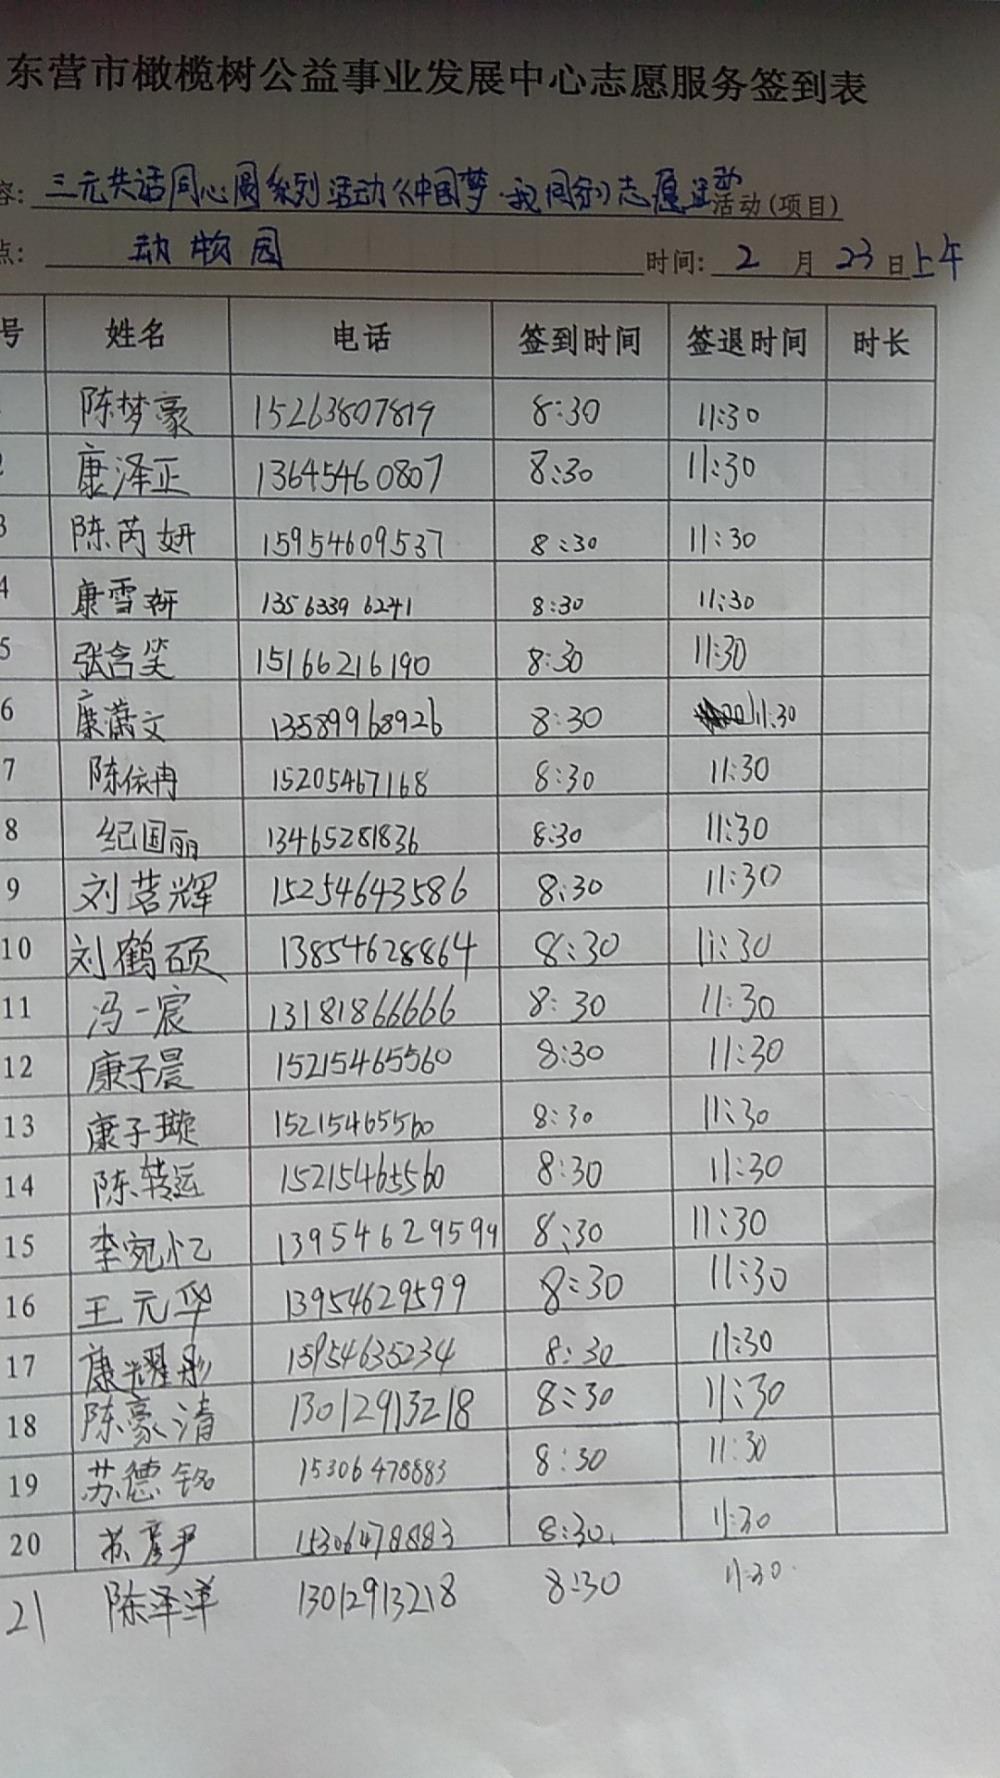 东营市橄榄树公益事业发展中心志愿服务签到表
容: 三元共话同心圆系列活动《中国梦·我同尔》志愿 活动 活动(项目)
点: 动物园 时间: 2 月 23 日上午
号 姓名 电话 签到时间 签退时间 时长
陈梦豪 15263807819 8:30 11:30
2 康泽正 13645460807 8:30 11:30
3 陈芮妍 15954609537 8:30 11:30
4 康雪妍 13563396241 8:30 11:30
5 张含笑 15166216190 8:30 11:30
6 康潇文 13589968926 8:30 11:30
7 陈依冉 15205467168 8:30 11:30
8 纪国丽 13465281836 8:30 11:30
9 刘茗辉 15254643586 8:30 11:30
10 刘鹤硕 13854628864 8:30 11:30
11 冯一宸 13181866666 8:30 11:30
12 康子晨 15215465560 8:30 11:30
13 康子璇 15215465560 8:30 11:30
14 陈转运 15215465560 8:30 11:30
15 李宛忆 13954629599 8:30 11:30
16 王元华 13954629599 8:30 11:30
17 康耀彤 15954635234 8:30 11:30
18 陈豪清 13012913218 8:30 11:30
19 苏德铭 15306478883 8:30 11:30
20 苏彦尹 15306478883 8:30 11:30
21 陈泽洋 13012913218 8:30 11:30